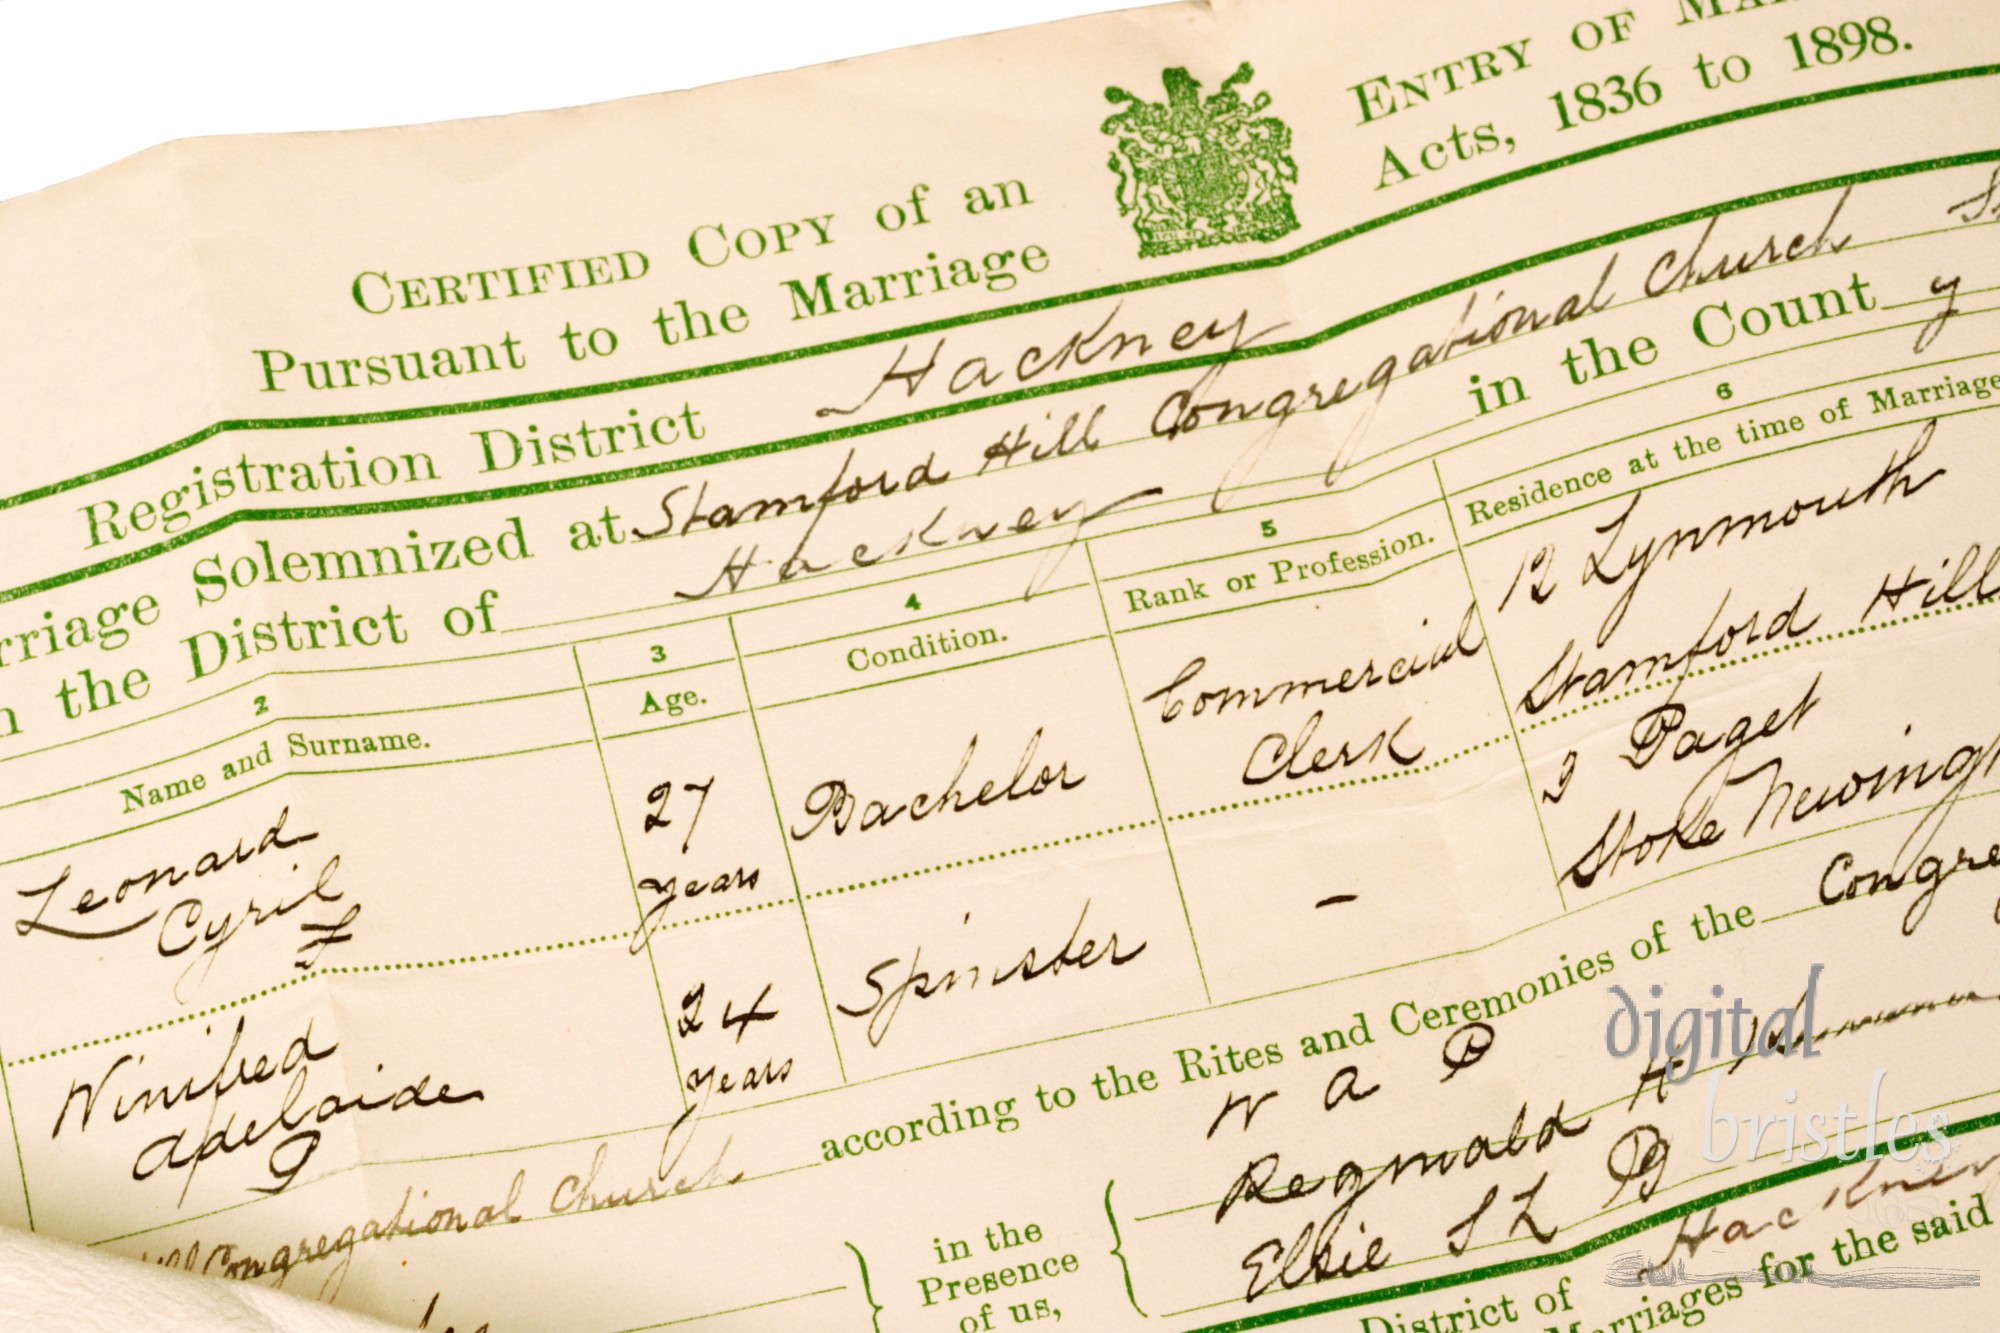 CERTIFIED COPY of an ENTRY OF
Pursuant to the Marriage Acts, 1836 to 1898.
Registration District Hackney
Solemnized at Stamford Hill Congregational Church
the District of Hackney in the Count y
2 3 4 5 6
Name and Surname. Age. Condition. Rank or Profession. Residence at the time of Marriage
Leonard Cyril F 27 years Bachelor Commercial Clerk 12 Lynmouth
Stamford Hill
Winifred Adelaide P 24 years Spinster - 2 Paget
Stoke
Congregational Church according to the Rites and Ceremonies of the
in the Presence of us,
W A P
Reginald H
Elsie
District of Hackney
Marriages for the said
digital
bristles